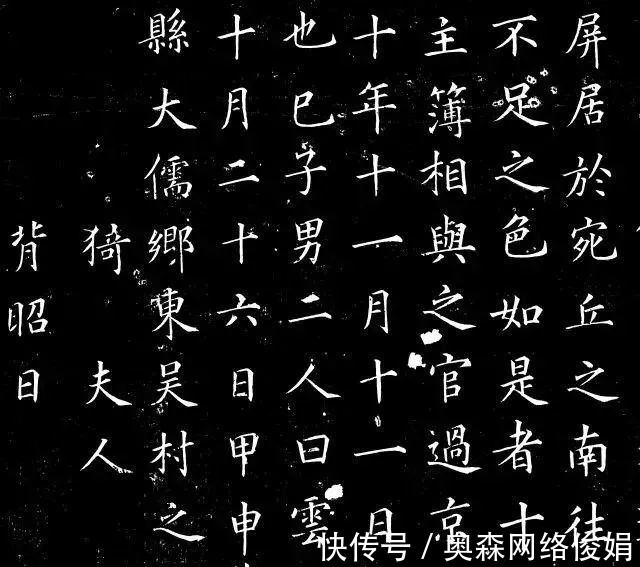 屏居於宛丘之南往
不足之色如是者十
主簿相與之官過京
十年十一月十一日
也巳子男二人曰雲
十月二十六日甲申
縣大儒鄉東吴村之
猗 夫人
背昭日
快传号 / 奥森网络俊娟